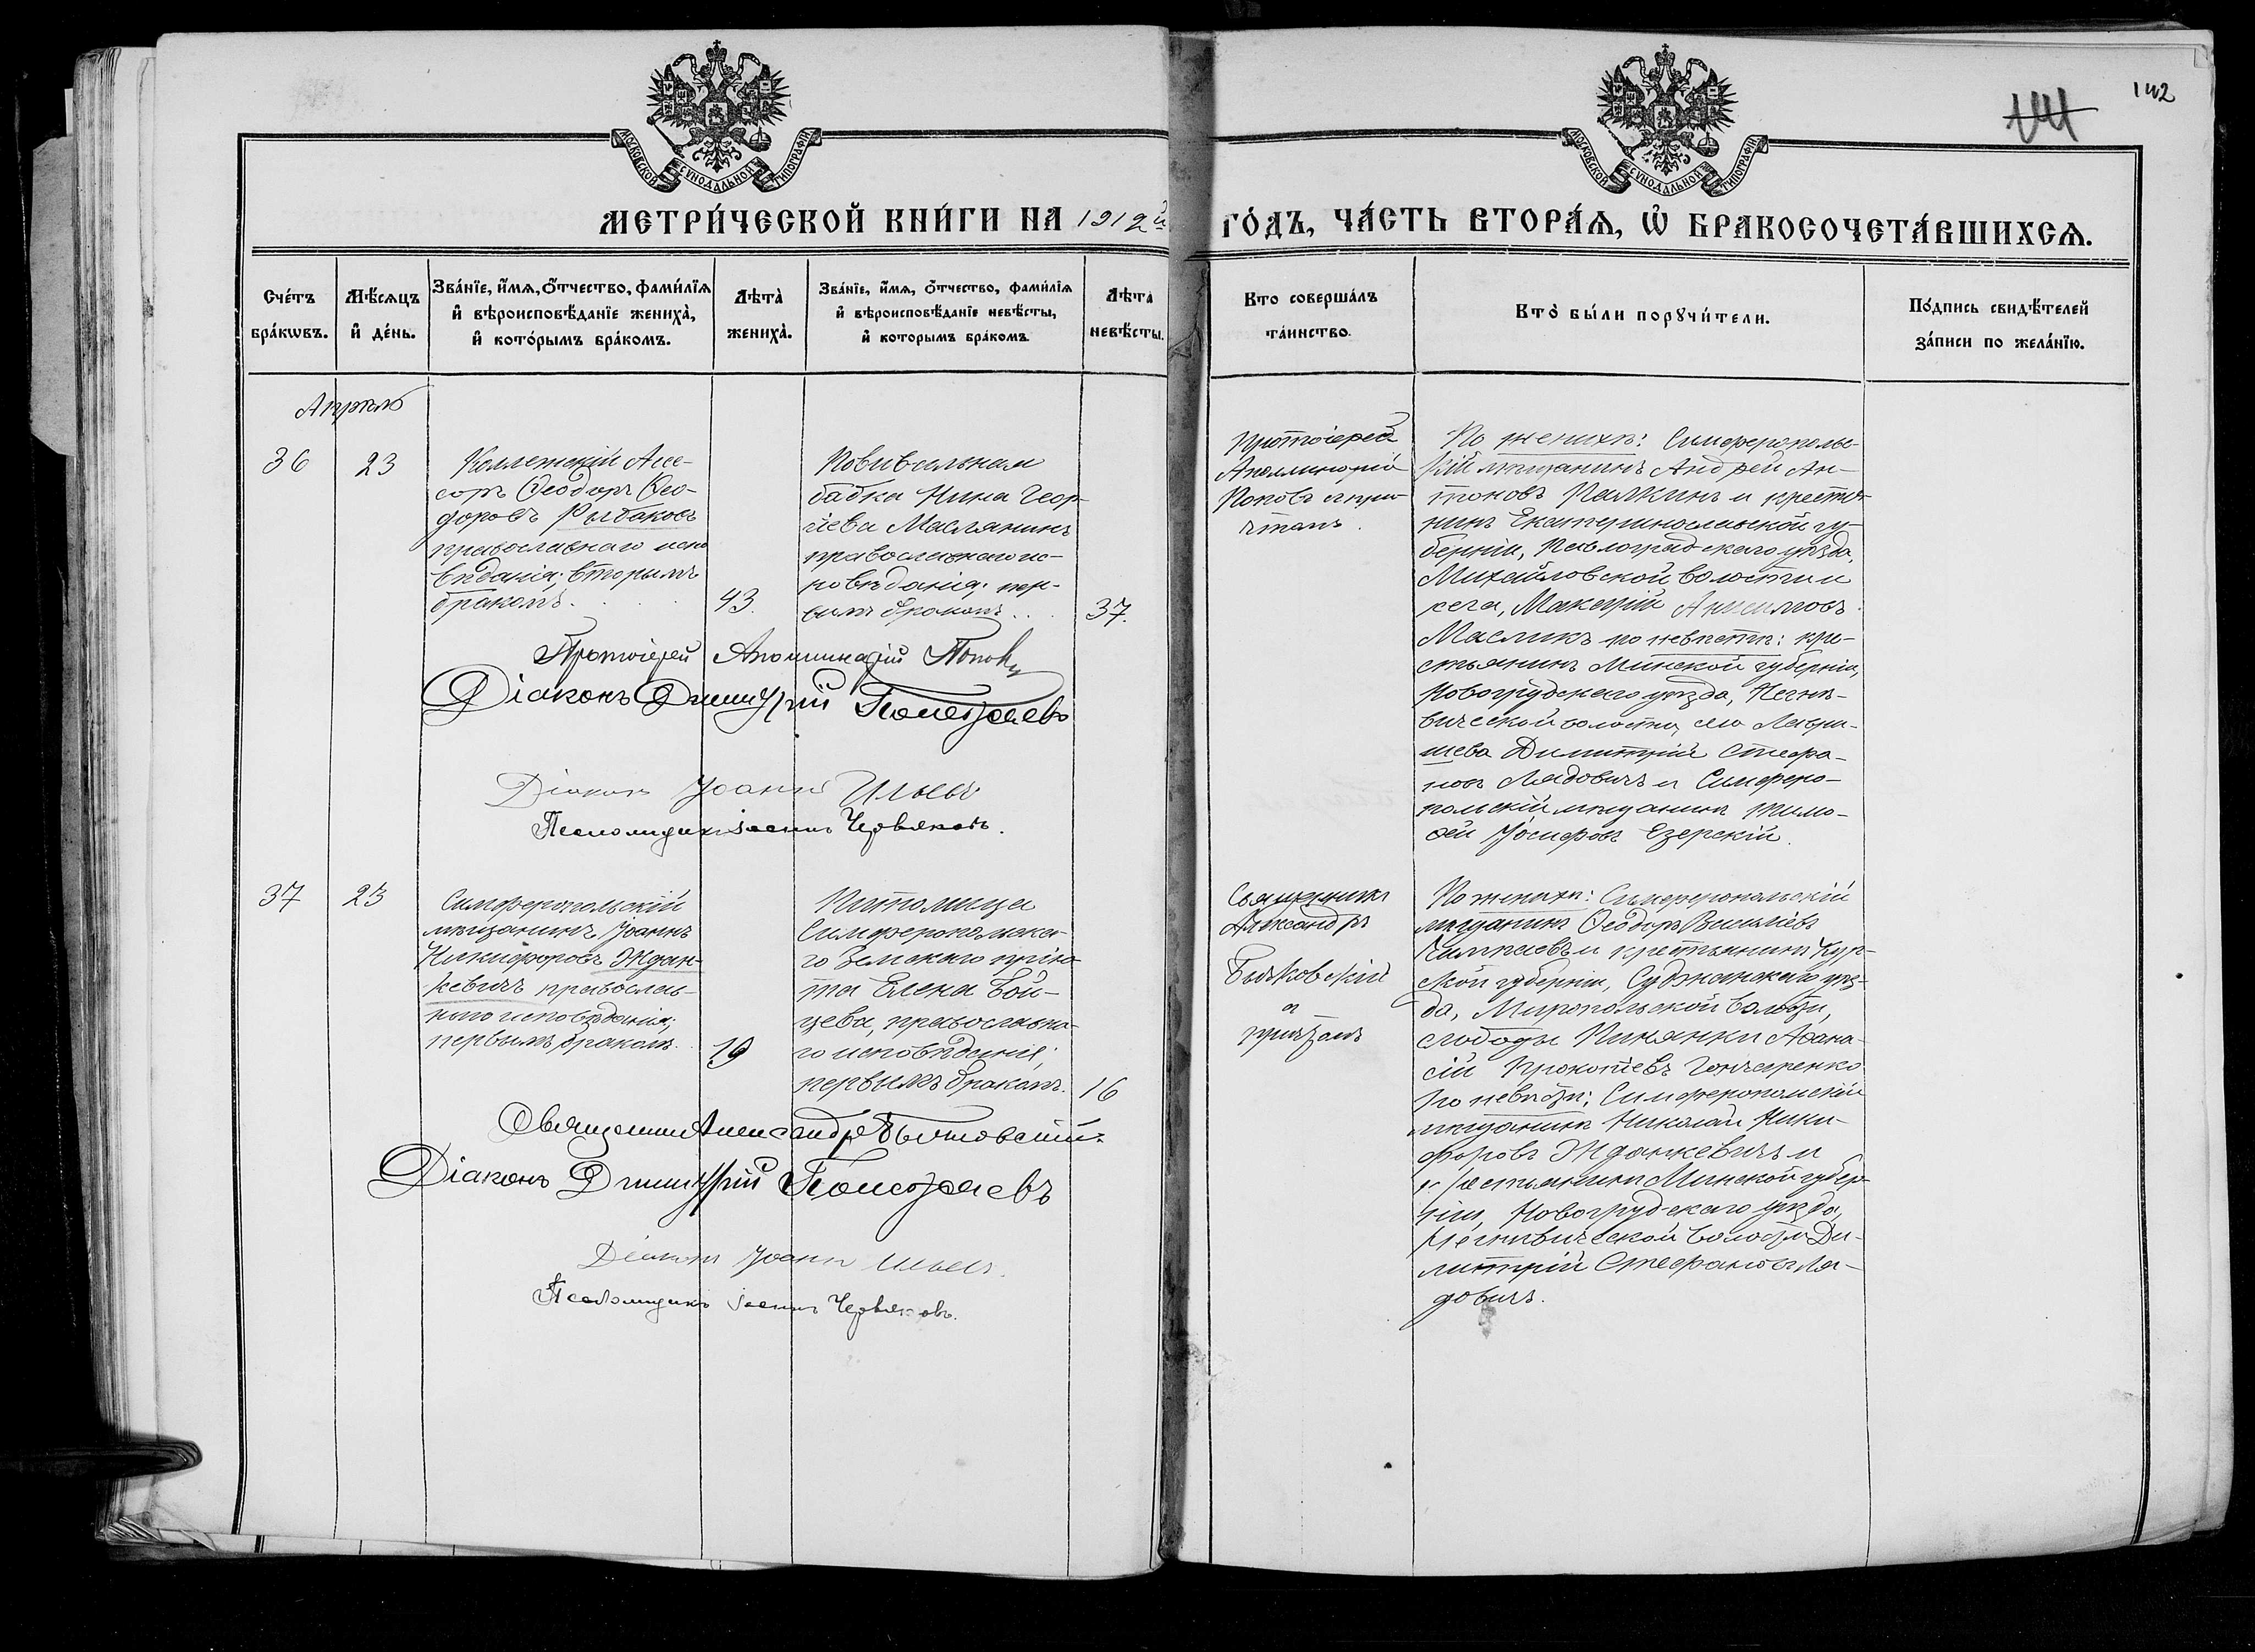 142
МОСКОВСКОЙ СѴНОДАЛЬНОЙ ТИПОГРАФІИ
МОСКОВСКОЙ СѴНОДАЛЬНОЙ ТИПОГРАФІИ
МЕТРИ́ЧЕСКОЙ КНИ́ГИ НА 1912й ГО́ДЪ, ЧА́СТЬ ВТОРА́Ѧ, Ѽ БРАКОСОЧЕТА́ВШИХСѦ.
Сче́тъ
бра́кѡвъ.
Мѣ́сяцъ
и҆ де́нь.
Зва́нїе, и҆́мя, о҆́тчество, фами́лїя
и҆ вѣроисповѣ́данїе жениха̀,
и҆ кото́рымъ бра́комъ.
Лѣта̀
жениха̀.
Зва́нїе, и҆́мя, о҆́тчество, фами́лїя
и҆ вѣроисповѣ́данїе невѣ́сты,
и҆ которымъ бра́комъ.
Лѣта̀
невѣ́сты.
Кто соверша́лъ
та́инство.
Кто̀ бы́ли порꙋчи́тели.
По́дпись свидѣ́телей
за́писи по жела́нїю.
Апрѣль
36
23
Коллежскій Ассе-
соръ Ѳеодоръ Ѳео-
доровъ Рыбаковъ
православнаго испо
вѣданія; вторымъ
бракомъ.
43.
Повивальная
бабка Нина Геор-
гіева Маслянинъ
православнаго ис-
повѣданія; пер-
вымъ бракомъ
37.
Протоіерей
Аполлинарій
Поповъ съ при-
чтомъ.
По женихѣ: Симферополь-
скій мѣщанинъ Андрей Ан-
тоновъ Палкинъ и крестья-
нинъ Екатеринославской гу-
берніи, Павлоградскаго уѣзда,
Михайловской волости и
села, Макарій Анисимовъ
Масликъ по невѣстѣ: кре-
стьянинъ Минской губерніи,
Новогрудскаго уѣзда, Негнѣ-
вической волости, село Лаври-
шева Димитрій Стефа-
новъ Лядовичъ и Симферо-
польскій мѣщанинъ Тимо-
ѳей Іосифовъ Езерскій.
Протоіерей Аполлинарій Поповъ
Діаконъ Димитрій
Діаконъ Іоаннъ Ильевъ
Псаломщикъ Іоаннъ Червяковъ.
37
23
Симферопольскій
мѣщанинъ Іоаннъ
Никифоровъ Ждан-
кевичъ православ-
наго исповѣданія;
первымъ бракомъ.
19
Питомица
Симферопольска-
го Земскаго прію-
та Елена Вой-
цева, православна-
го исповѣданія;
первымъ бракомъ.
16
Священникъ
Александръ
Бычковскій
и
причтомъ
По женихѣ: Симферопольскій
мѣщанинъ Ѳеодоръ Васильевъ
и крестьянинъ Кур-
ской губерніи, Суджанскаго уѣз-
да, Миропольской волости,
слободы Пинянки Аѳана-
сій Прокопіевъ Гончаренко
по невѣстѣ: Симферопольскій
мѣщанинъ Николай Ники-
форовъ Жданкевичъ и
крестьянинъ Минской губер-
ніи, Новогрудскаго уѣзда,
Негнѣвической волости Ди-
митрій Стефановъ Ля-
довичъ.
Священникъ Александръ Бычковскій
Діаконъ Димитрій
Діаконъ Іоаннъ Ильевъ.
Псаломщикъ Іоаннъ Червяковъ.